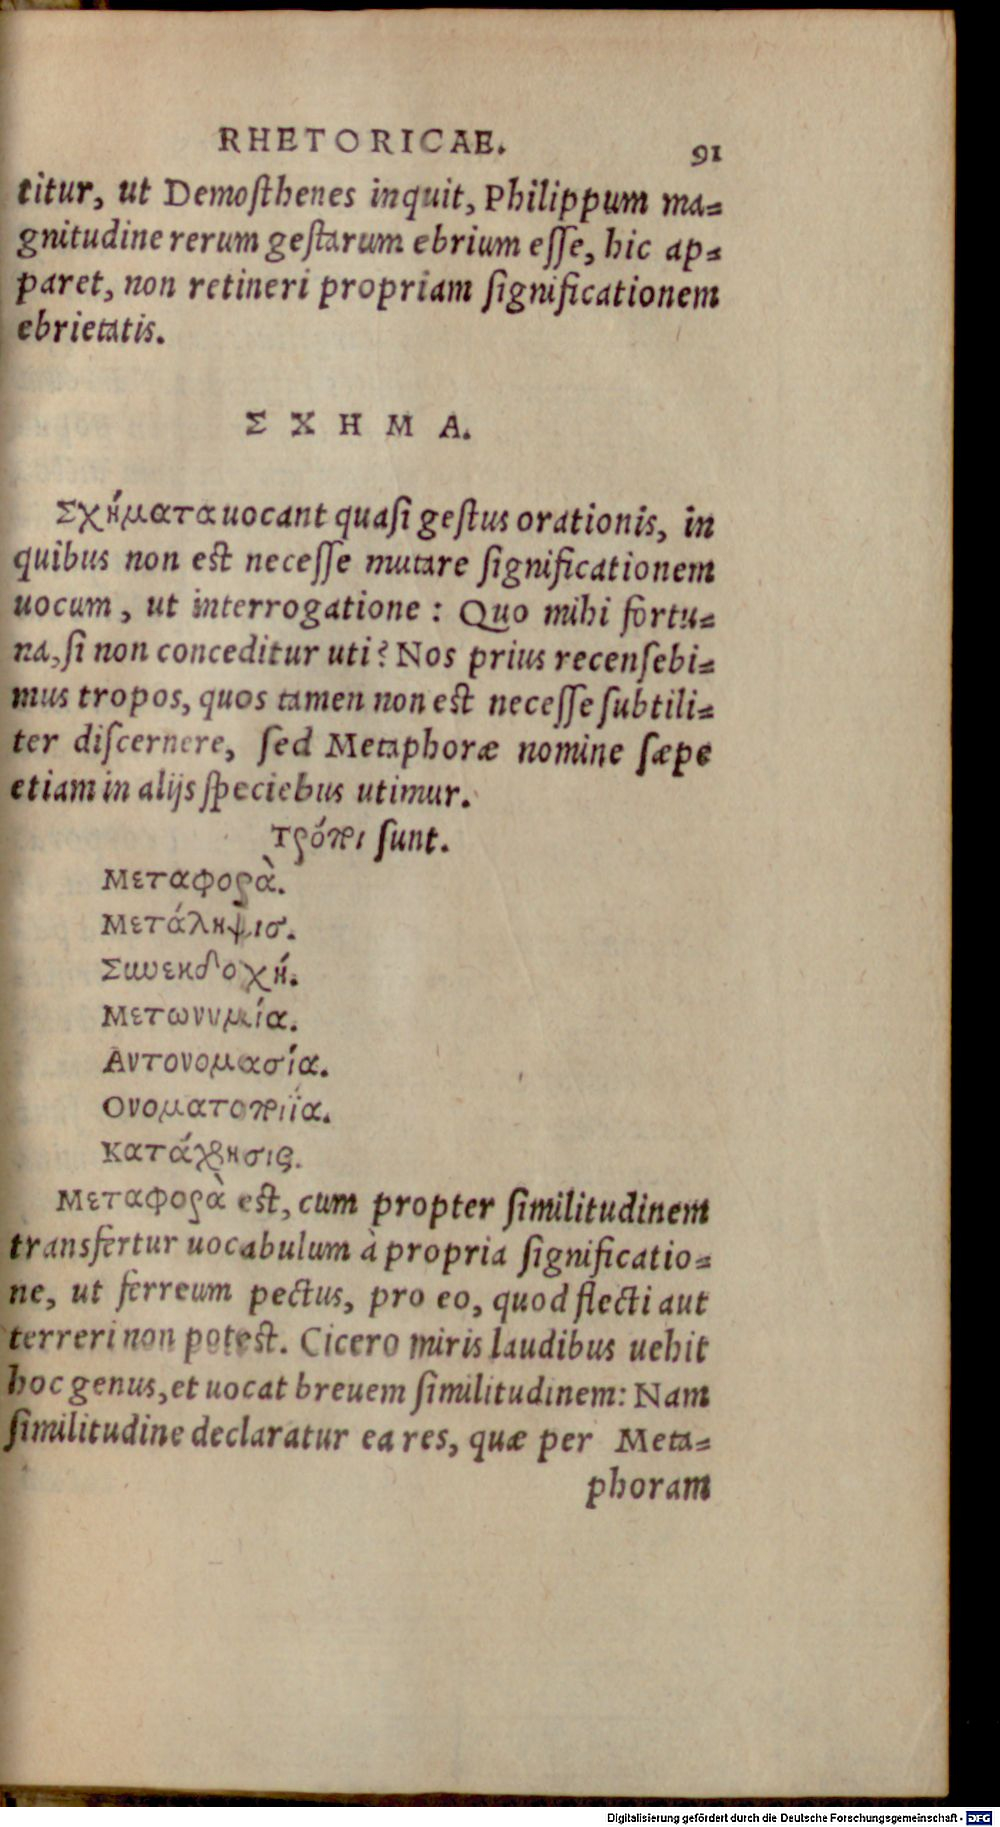 RHETORICAE. 91
titur, ut Demoſthenes inquit, Philippum ma=
gnitudine rerum geſtarum ebrium eſſe, hic ap=
paret, non retineri propriam ſignificationem
ebrietatis.
ΣΧΗΜΑ.
Σχήματα uocant quaſi geſtus orationis, in
quibus non est neceſſe mutare ſignificationem
uocum, ut interrogatione: Quo mihi fortu=
na, ſi non conceditur uti? Nos prius recenſebi=
mus tropos, quos tamen non est neceſſe ſubtili=
ter diſcernere, ſed Metaphoræ nomine ſæpe
etiam in alijs ſpeciebus utimur.
Τρόποι ſunt.
Μεταφορὰ.
Μετάληψισ.
Συνεκδοχή.
Μετωνυμία.
Αντονομασία.
Ονοματοποιΐα.
Κατάχρησις.
Μεταφορὰ est, cum propter ſimilitudinem
transfertur uocabulum à propria ſignificatio=
ne, ut ferreum pectus, pro eo, quod flecti aut
terreri non potest. Cicero miris laudibus uehit
hoc genus, et uocat breuem ſimilitudinem: Nam
ſimilitudine declaratur ea res, quæ per Meta=
phoram
Digitalisierung gefördert durch die Deutsche Forschungsgemeinschaft - DFG